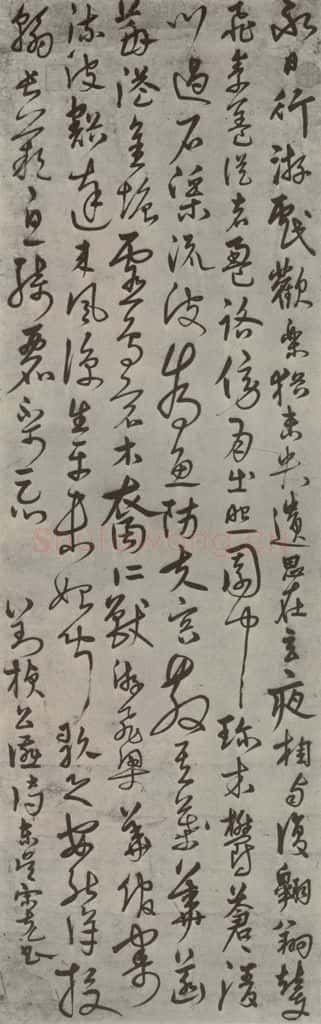 永日行游戲歡樂猶未央遺思在玄夜相與復翱翔輦
飛素蓋從者盈路傍月出照園中珍木鬱蒼蒼清
川過石渠流波為魚防芙蓉散其華菡
萏溢金塘靈鳥宿水裔仁獸游飛梁華館寄
流波豁達來風涼生平未始聞歌之安能詳投
翰長歎息綺麗不可忘 右劉楨公讌詩東吳宋克書